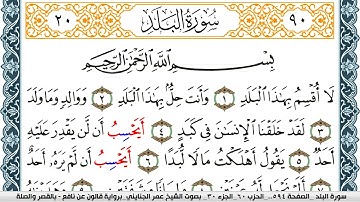 ٢٠ سُورَةُ الْبَلَدِ ٩٠
بِسْمِ اللَّهِ الرَّحْمَٰنِ الرَّحِيمِ
لَا أُقْسِمُ بِهَٰذَا الْبَلَدِ ١ وَأَنتَ حِلٌّ بِهَٰذَا الْبَلَدِ ٢ وَوَالِدٍ وَمَا وَلَدَ
٣ لَقَدْ خَلَقْنَا الْإِنسَٰنَ فِي كَبَدٍ ٤ أَيَحْسِبُ أَن لَّن يَقْدِرَ عَلَيْهِ
أَحَدٌ ٥ يَقُولُ أَهْلَكْتُ مَالًا لُّبَدًا ٦ أَيَحْسِبُ أَن لَّمْ يَرَهُۥ أَحَدٌ
سورة البلد الصفحة ٥٩٤ الحزب ٦٠ الجزء ٣٠ بصوت الشيخ عمر الجنايني برواية قالون عن نافع - بالقصر والصلة